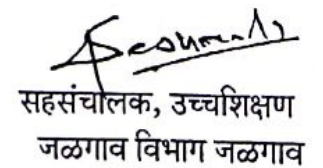 सहसंचालक, उच्चशिक्षण
जळगाव विभाग जळगाव